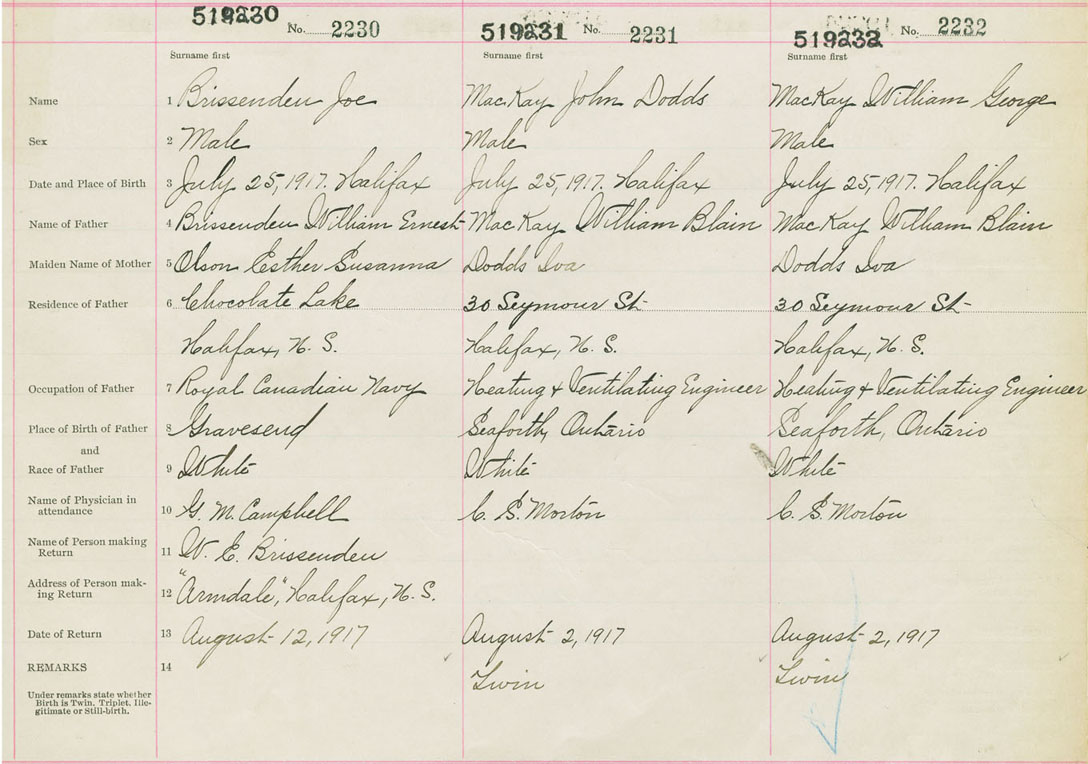 519230 No. 2230 519231 No. 2231 519232 No. 2232
Surname first Surname first Surname first
Name 1 Brissenden Joe MacKay John Dodds MacKay William George
Sex 2 Male Male Male
Date and Place of Birth 3 July 25, 1917. Halifax July 25, 1917. Halifax July 25, 1917. Halifax
Name of Father 4 Brissenden William Ernest MacKay William Blain MacKay William Blain
Maiden Name of Mother 5 Olson Esther Susanna Dodds Iva Dodds Iva
Residence of Father 6 Chocolate Lake 30 Seymour St 30 Seymour St
Halifax, N. S. Halifax, N. S. Halifax, N. S.
Occupation of Father 7 Royal Canadian Navy Heating & Ventilating Engineer Heating & Ventilating Engineer
Place of Birth of Father 8 Gravesend Seaforth, Ontario Seaforth, Ontario
and
Race of Father 9 White White White
Name of Physician in
attendance 10 G. M. Campbell C. S. Morton C. S. Morton
Name of Person making
Return 11 W. E. Brissenden
Address of Person mak-
ing Return 12 "Armdale," Halifax, N. S.
Date of Return 13 August 12, 1917 August 2, 1917 August 2, 1917
REMARKS 14 Twin Twin
Under remarks state whether
Birth is Twin, Triplet, Ille-
gitimate or Still-birth.